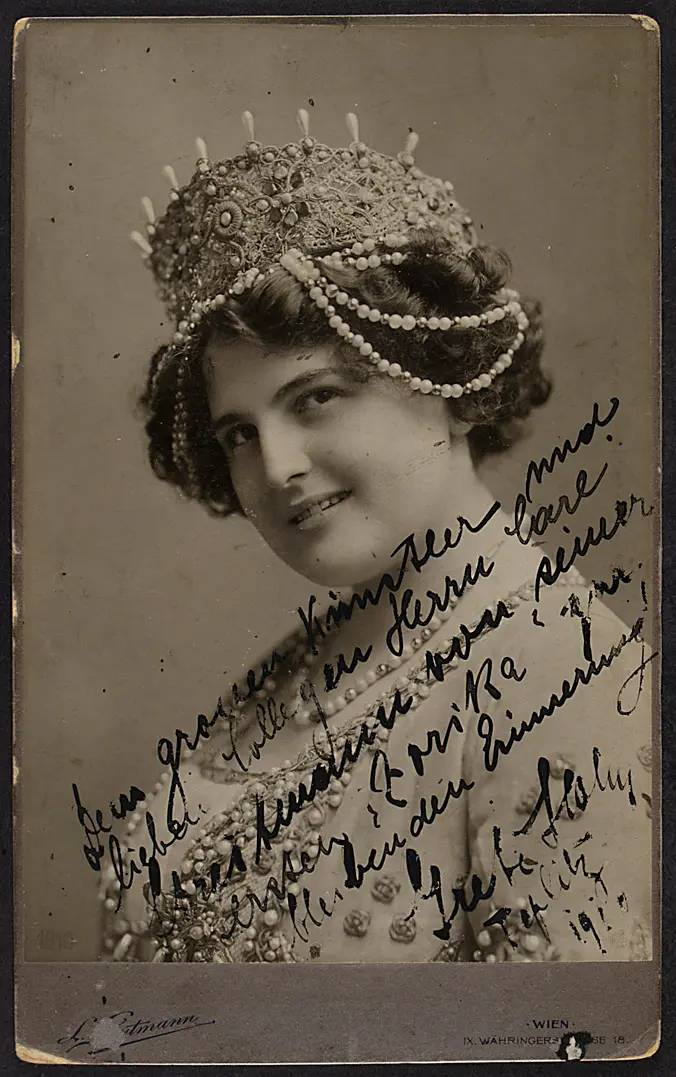 Dem großen Künstler und
lieben Collegen Herrn Carl
Streitmann von seiner
ersten "Zorika" zur
bleibenden Erinnerung!
Grete Holm
Teplitz
Gutmann
· WIEN ·
IX. WÄHRINGER 18.